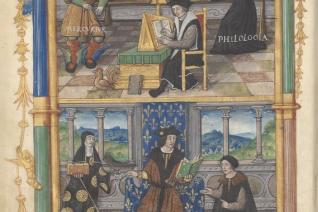 MERCVRE
PHILOLOGIA